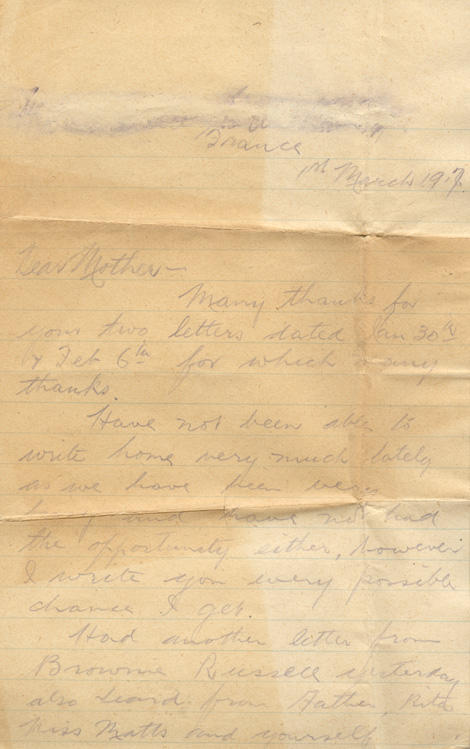 France
1st March 1917.
Dear Mother –
Many thanks for
your two letters dated Jan 30th
& Feb 6th for which many
thanks.
Have not been able to
write home very much lately
as we have been very
busy and have not had
the opportunity either, however
I write you every possible
chance I get.
Had another letter from
Brownie Russell yesterday
also heard from Father, Rita
Miss Batts and yourself